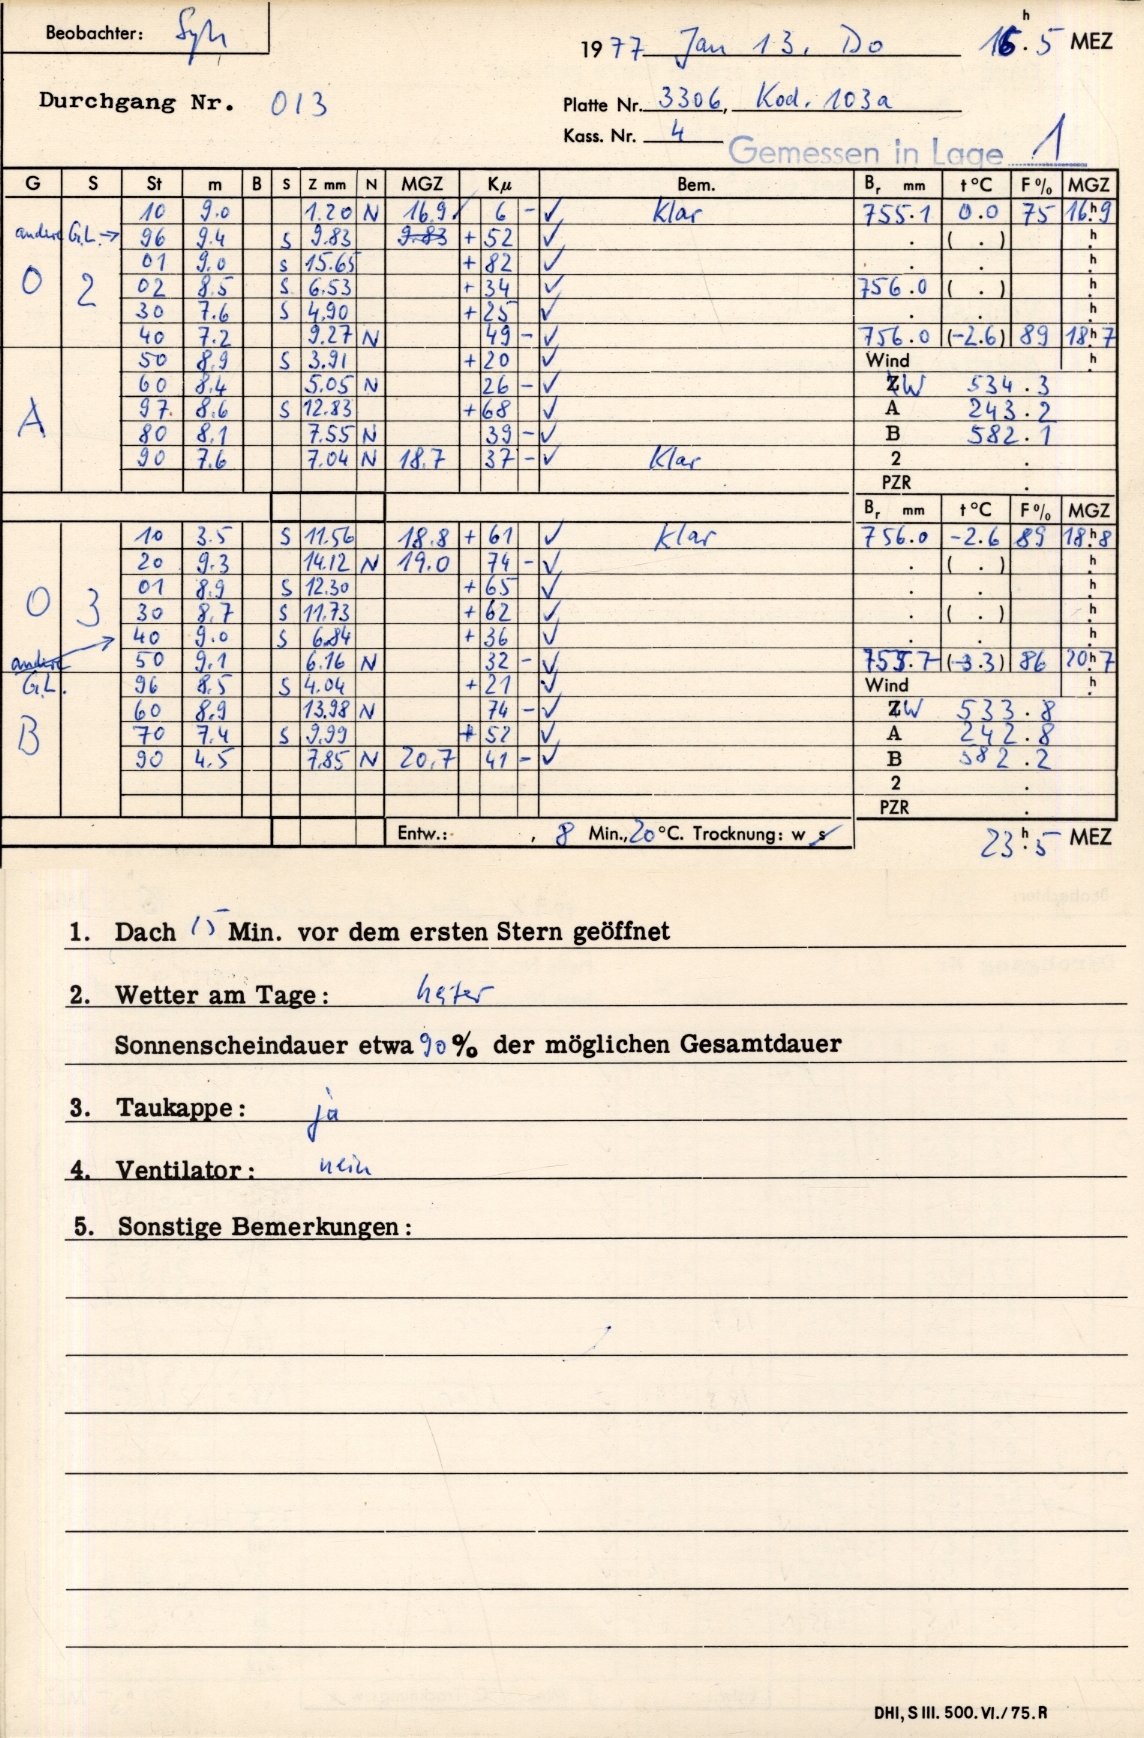 Beobachter: Syh
1977 Jan 13. Do 16h.5 MEZ
Durchgang Nr. 013
Platte Nr. 3306, Kod. 103a
Kass. Nr. 4
Gemessen in Lage 1
G S St m B S Z mm N MGZ Kµ Bem. Br mm t °C F% MGZ
10 9.0 1.20 N 16.9 6 - ✓ Klar 755.1 0.0 75 16h9
andere G.L. → 96 9.4 S 9.83 9.83 + 52 ✓ . ( . ) h
01 9.0 S 15.65 + 82 ✓ . . h
O 2 02 8.5 S 6.53 + 34 ✓ 756.0 ( . ) h
30 7.6 S 4.90 + 25 ✓ . . h
40 7.2 9.27 N 49 - ✓ 756.0 (-2.6) 89 18h7
50 8.9 S 3.91 + 20 ✓ Wind h
60 8.4 5.05 N 26 - ✓ ZW 534.3
A 97. 8.6 S 12.83 + 68 ✓ A 243.2
80 8.1 7.55 N 39 - ✓ B 582.1
90 7.6 7.04 N 18.7 37 - ✓ Klar 2 .
PZR .
Br mm t °C F% MGZ
10 3.5 S 11.56 18.8 + 61 ✓ Klar 756.0 -2.6 89 18h8
20 9.3 14.12 N 19.0 74 - ✓ . ( . ) h
01 8.9 S 12.30 + 65 ✓ . . h
O 3 30 8.7 S 11.73 + 62 ✓ . ( . ) h
40 9.0 S 6.84 + 36 ✓ . . h
andere 50 9.1 6.16 N 32 - ✓ 755.7 (-3.3) 86 20h7
G.L. 96 8.5 S 4.04 + 21 ✓ Wind h
60 8.9 13.98 N 74 - ✓ ZW 533.8
B 70 7.4 S 9.99 + 52 ✓ A 242.8
90 4.5 7.85 N 20.7 41 - ✓ B 582.2
2 .
PZR .
Entw.: , 8 Min., 20 °C. Trocknung: w s
23h.5 MEZ
1. Dach 15 Min. vor dem ersten Stern geöffnet
2. Wetter am Tage: heiter
Sonnenscheindauer etwa 90 % der möglichen Gesamtdauer
3. Taukappe: ja
4. Ventilator: nein
5. Sonstige Bemerkungen:
DHI, S III. 500. VI./75. R